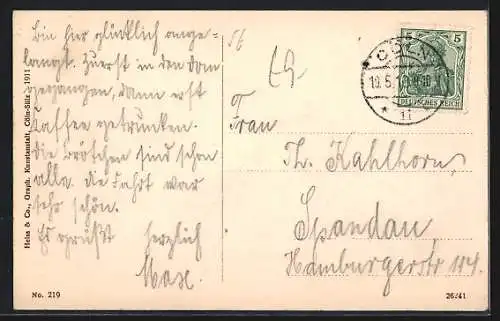 Bin hier glücklich ange-
langt. Zuerst in den Dom
gegangen, dann erst
Kaffee getrunken.
Die Brötchen sind schon
alle. Die Fahrt war
sehr schön.
Es grüßt herzlich
Max.
Heiss & Co., Graph. Kunstanstalt, Cöln-Sülz 1911
No. 219
5 5
DEUTSCHES REICH
CÖLN
10.5.
* 11
Frau
Th. Kahlhorn
Spandau
Hamburgerstr 114.
26/41